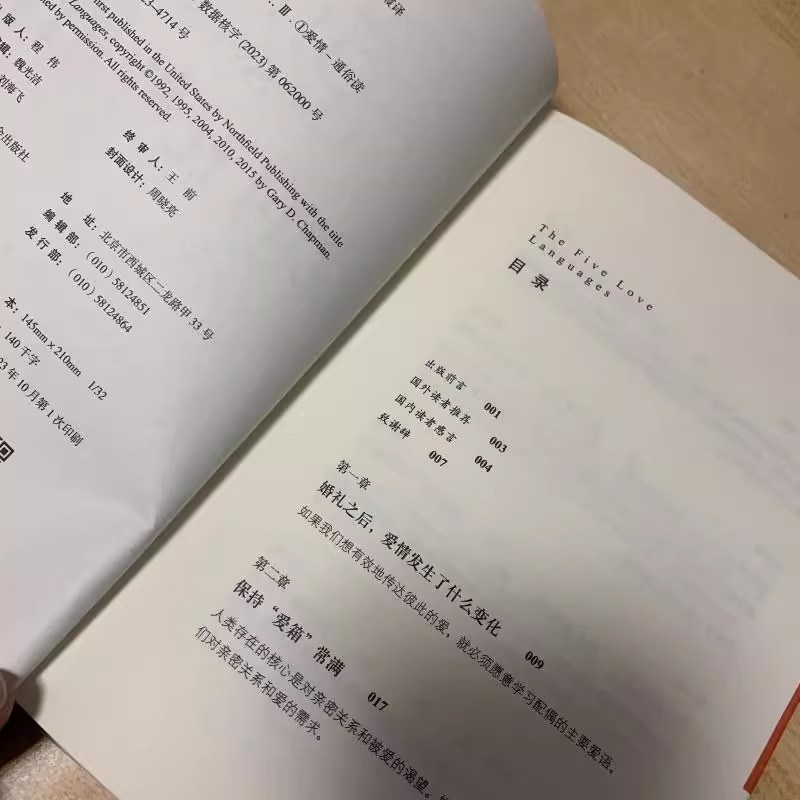 3-4714 号
数据核字 (2023) 第 062000 号
… Ⅲ. ①爱情－通俗读
first published in the United States by Northfield Publishing with the title
Languages, copyright ©1992, 1995, 2004, 2010, 2015 by Gary D. Chapman.
by permission. All rights reserved.
版人：程 伟
编辑：魏光洁
刘海飞
出版社
终 审 人：王 前
封面设计：周晓亮
地 址：北京市西城区二龙路甲 33 号
编 辑 部：(010) 58124851
发 行 部：(010) 58124864
本：145mm×210mm 1/32
140 千字
23 年 10 月第 1 次印刷
The Five Love
Languages
目 录
出版前言 001
国外读者推荐 003
国内读者感言 004
致谢辞 007
第一章
婚礼之后，爱情发生了什么变化 009
如果我们想有效地传达彼此的爱，就必须愿意学习配偶的主要爱语。
第二章
保持“爱箱”常满 017
人类存在的核心是对亲密关系和被爱的渴望。
们对亲密关系和爱的需求。